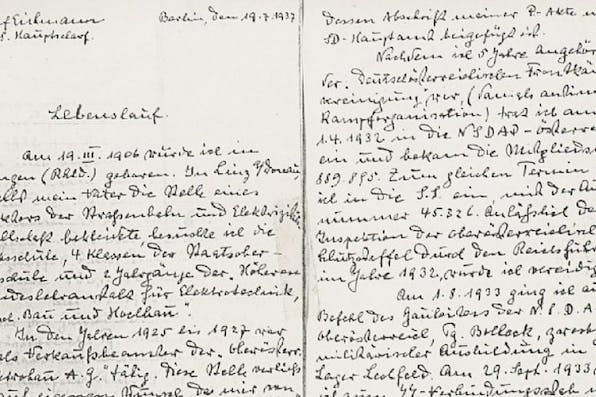 f Eichmann
Berlin, den 19.7.1937
S. Hauptscharf.
Lebenslauf.
Am 19.III.1906 wurde ich in
ngen (Rhld.) geboren. In Linz a/Donau
mein Vater die Stelle eines
ektors der Strassenbahn und Elektrizitäts
llschaft bekleidete besuchte ich die
sschule, 4 Klassen der Staatsober-
schule und 2 Jahrgänge der Höheren
ndeslehranstalt für Elektrotechnik,
Bau und Hochbau".
In den Jahren 1925 bis 1927 war
als Verkaufsbeamter der "oberösterr.
ktrobau A.G." tätig. Diese Stelle verliess
auf eigenen Wunsch da mir von
Dessen Abschrift meiner P-Akte
SD-Hauptamt beigefügt ist.
Nachdem ich 5 Jahre Angehör
der "Deutschösterreichischen Frontkäm
vereinigung" war, (damals
Kampforganisation) trat ich am
1.4.1932 in die NSDAP-Österrei
ein und bekam die Mitglieds
889.895. Zum gleichen Termin
ich in die SS. ein, mit der Au
nummer 45.326. Anlässlich der
Inspektion der oberösterreichisch
Schutzstaffel durch den Reichsführ
im Jahre 1932, wurde ich vereidig
Am 1.8.1933 ging ich au
Befehl des Gauleiters der N.S.D.A.
Oberösterreich, Pg. Bolleck, zwecks
militärischer Ausbildung in
Lager Lechfeld. Am 29. Sept. 1933
ich zum SS-Verbindungsstab